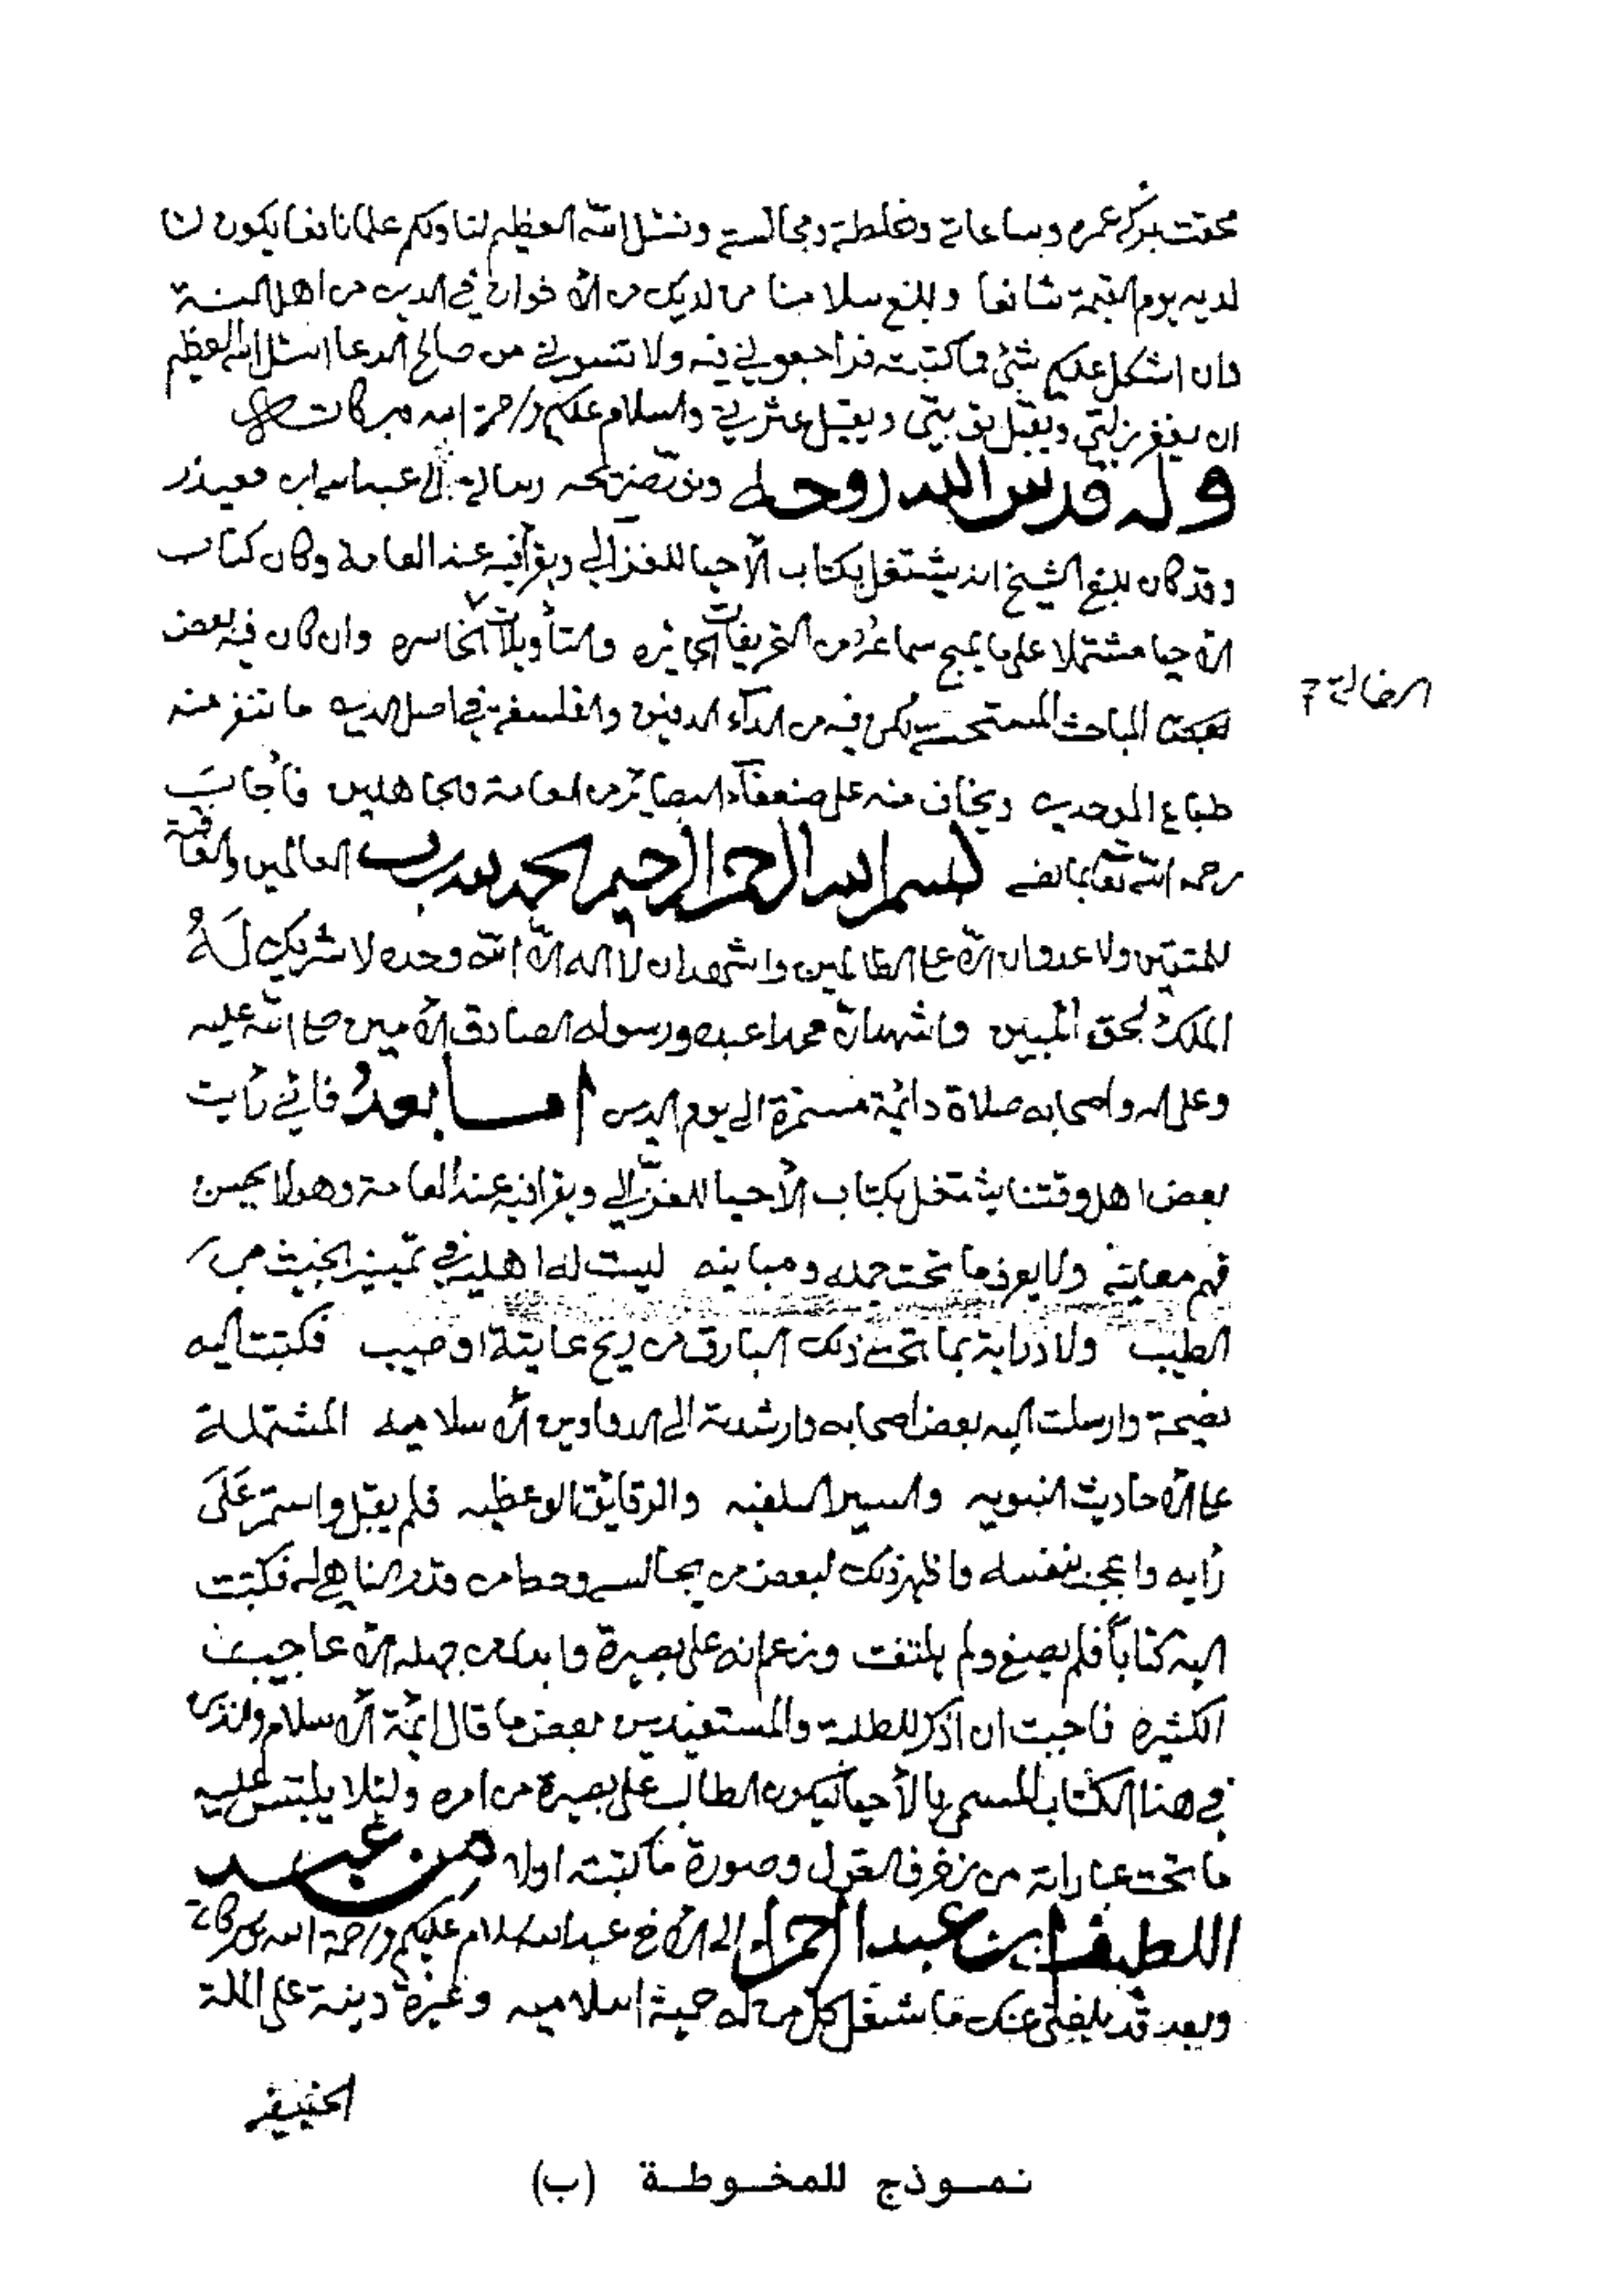 محقت بركة عمره وساعاته وخلطته ومجالسته ونسئل الله العظيم لنا ولكم علما نافعا يكون لنا
لديه يوم القيمة شافعا وبلغ سلامنا من لديك من الأخوان في الدين من اهل السنة
فان اشكل عليكم شئ مما كتبت فراجعوني فيه ولا تنسوني من صالح الدعا اسئل الله العظيم
ان يغفر زلتي ويقبل توبتي ويقيل عثرتي والسلام عليكم ورحمة الله وبركاته
وله قدس الله روحه ونور ضريحه رسالة الى عبد الله بن معيذر
وقد كان بلغ الشيخ انه يشتغل بكتاب الأحيا للغزالي ويقرأ فيه عند العامة وكان كتاب
الأحيا مشتملا على ما يمج سماعه من التحريفات الجائره والتأويلات الخاسره وان كان فيه بعض
المباحث المستحسنه لكن فيه من الداء الدفين والفلسفة في اصل الدين ما تنفر منه
الضالة
طباع الموحدين ويخاف منه على ضعفآء البصائر من العامة والجاهلين فأجاب
رحمه الله تعالى بما نصه بسم الله الرحمن الرحيم الحمد لله رب العالمين والعاقبة
للمتقين ولا عدوان الا على الظالمين واشهد ان لا اله الا الله وحده لا شريك له
الملك الحق المبين واشهد ان محمدا عبده ورسوله الصادق الأمين صلى الله عليه
وعلى اله واصحابه صلاة دائمة مستمرة الى يوم الدين اما بعد فاني رأيت
بعض اهل وقتنا يشتغل بكتاب الأحيا للغزالي ويقرا فيه عند العامة وهو لا يحسن
فهم معانيه ولا يعرف ما تحت جمله ومبانيه ليست له اهلية في تمييز الخبيث من
الطيب ولا دراية بما تحت ذلك البارق من ريح عاتية او صيب فكتبت اليه
نصيحة وارسلت اليه بعض اصحابه وارشدته الى الدواوين الأسلاميه المشتملة
على الأحاديث النبويه والسير السلفيه والرقايق الوعظيه فلم يقبل واستمر على
رأيه واعجب بنفسه واظهر ذلك لبعض من يجالسه وحط من قدر الناهي له فكتبت
اليه كتابا فلم يصغ ولم يلتفت وزعم انه على بصيرة وابدا من جهله الأعاجيب
الكثيره فاحببت ان اذكر للطلبة والمستفيدين بعض ما قال ائمة الأسلام والدين
في هذا الكتاب المسمى بالأحيا ليكون الطالب على بصيرة من امره ولئلا يلتبس عليه
ما تحت عباراته من زخرف القول وصورة ما كتبته اولا من عبد
اللطيف ابن عبد الرحمن الى الأخ عبد الله سلام عليكم ورحمة الله وبركاته
وبعد فقد بلغني عنك ما يشغل كل من له حمية اسلاميه وغيرة دينية على الملة
الحنيفيه
نموذج للمخوطة (ب)